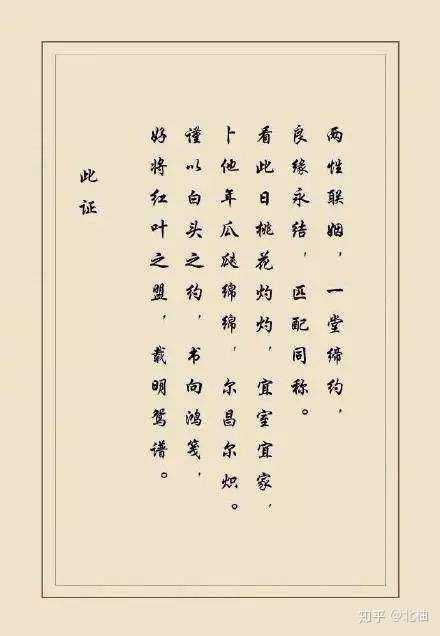 两性联姻，一堂缔约，
良缘永结，匹配同称。
看此日桃花灼灼，宜室宜家，
卜他年瓜瓞绵绵，尔昌尔炽。
谨以白头之约，书向鸿笺，
好将红叶之盟，载明鸳谱。
此证
知乎 @北柚